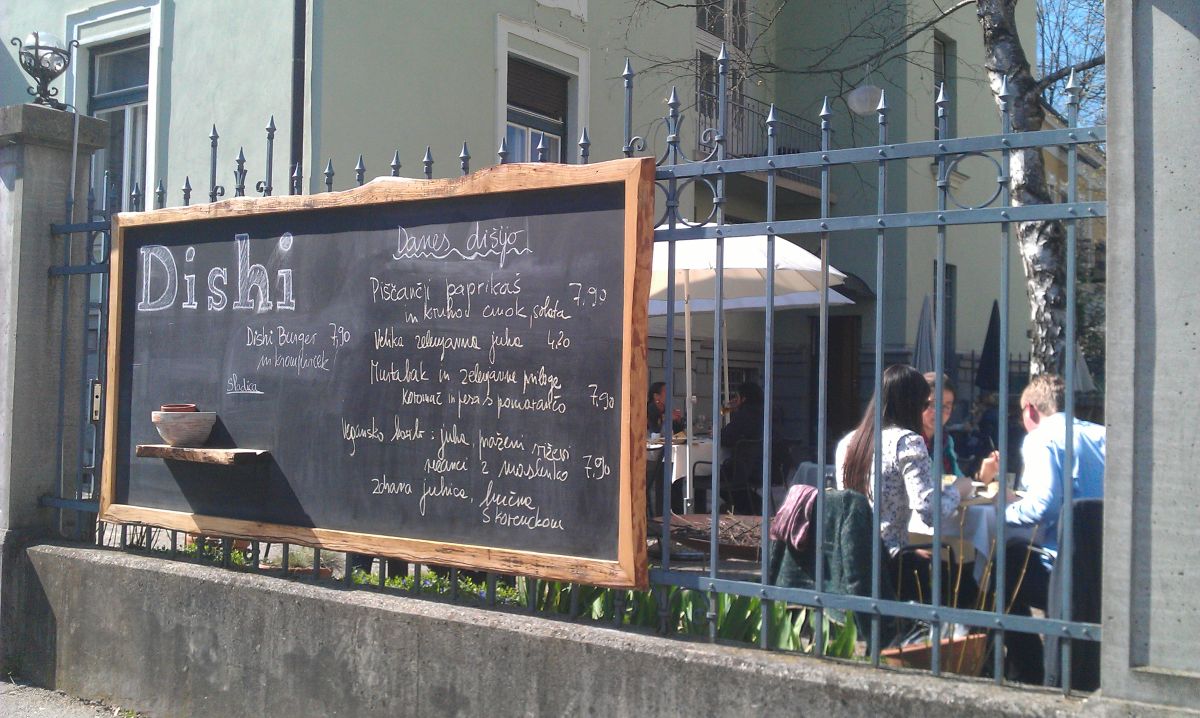 Dishi
Dishi Burger 7,90
in krompirček
Sladica
Danes dišijo
Piščančji paprikaš
in kruhov cmok, solata 7,90
Velika zelenjavna juha 4,20
Murtabak in zelenjavne priloge
koromač in pesa s pomarančo 7,90
Vegansko kosilo: juha, praženi riževi
rezanci z
7,90
Zdrava juhica, bučna
s korenčkom